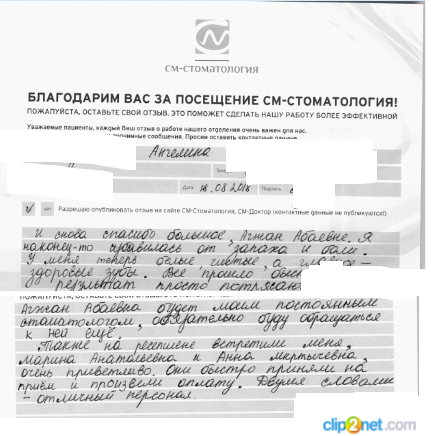 СМ-СТОМАТОЛОГИЯ
БЛАГОДАРИМ ВАС ЗА ПОСЕЩЕНИЕ СМ-СТОМАТОЛОГИЯ!
ПОЖАЛУЙСТА, ОСТАВЬТЕ СВОЙ ОТЗЫВ. ЭТО ПОМОЖЕТ СДЕЛАТЬ НАШУ РАБОТУ БОЛЕЕ ЭФФЕКТИВНОЙ
Уважаемые пациенты, каждый Ваш отзыв о работе нашего отделения очень важен для нас.
сообщения. Просим оставить контактные данные
Ангелина
Дата 18.08.2018 Подпись
Разрешаю опубликовать отзыв на сайте СМ-Стоматология, СМ-Доктор (контактные данные не публикуются)
И снова спасибо большое, Агжан Абаевне. Я
наконец-то избавилась от запаха и боли.
У меня теперь белые, чистые, а главное –
здоровые зубы. Все прошло
результат просто
ПОЖАЛУЙСТА,
Агжан Абаевна будет моим постоянным
стоматологом, обязательно буду обращаться
к ней ещё.
Также на ресепшене встретили меня,
Марина Анатольевна и Анна Мкртычевна,
очень приветливо. Они быстро приняли на
приём и произвели оплату. Двумя словами
– отличный персонал.
clip2net.com